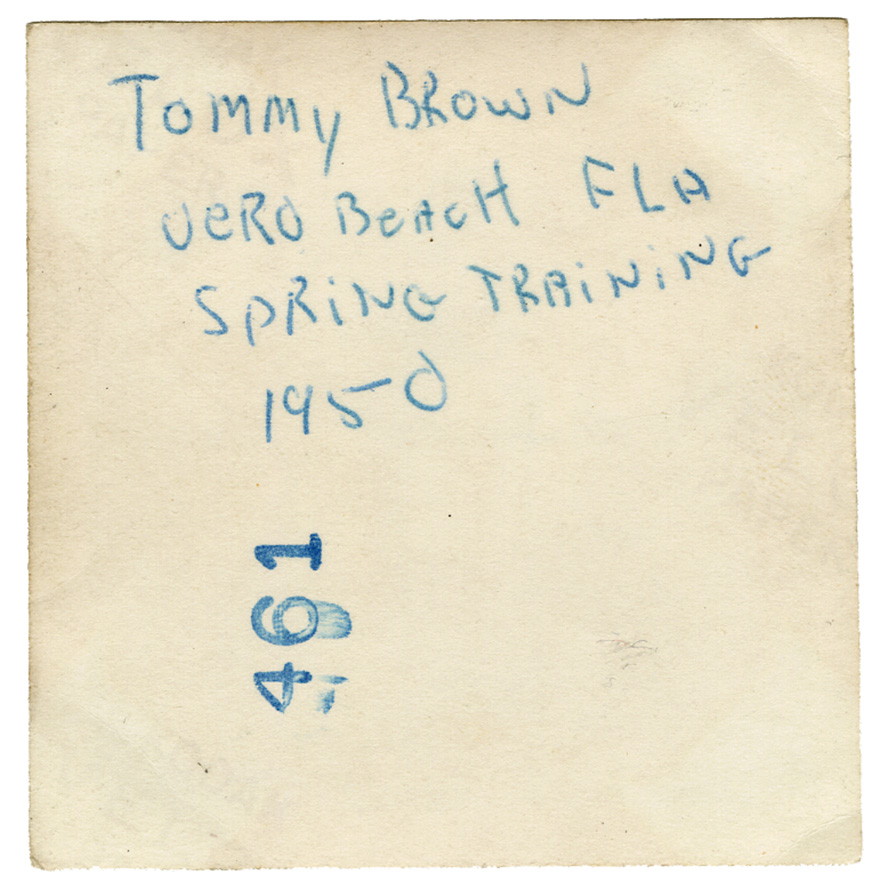 Tommy BROWN
VERO BEACH FLA
SPRING TRAINING
1950
461